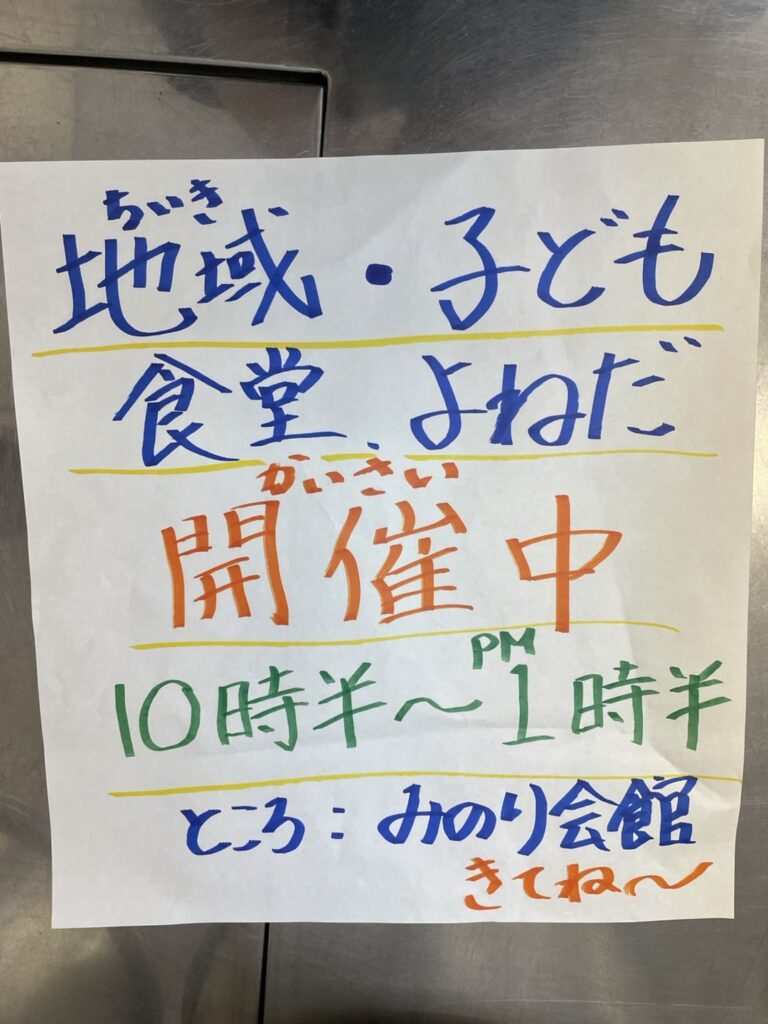 ちいき
地域・子ども
食堂、よねだ
かいさい
開催中
PM
10時半〜1時半
ところ：みのり会館
きてね〜